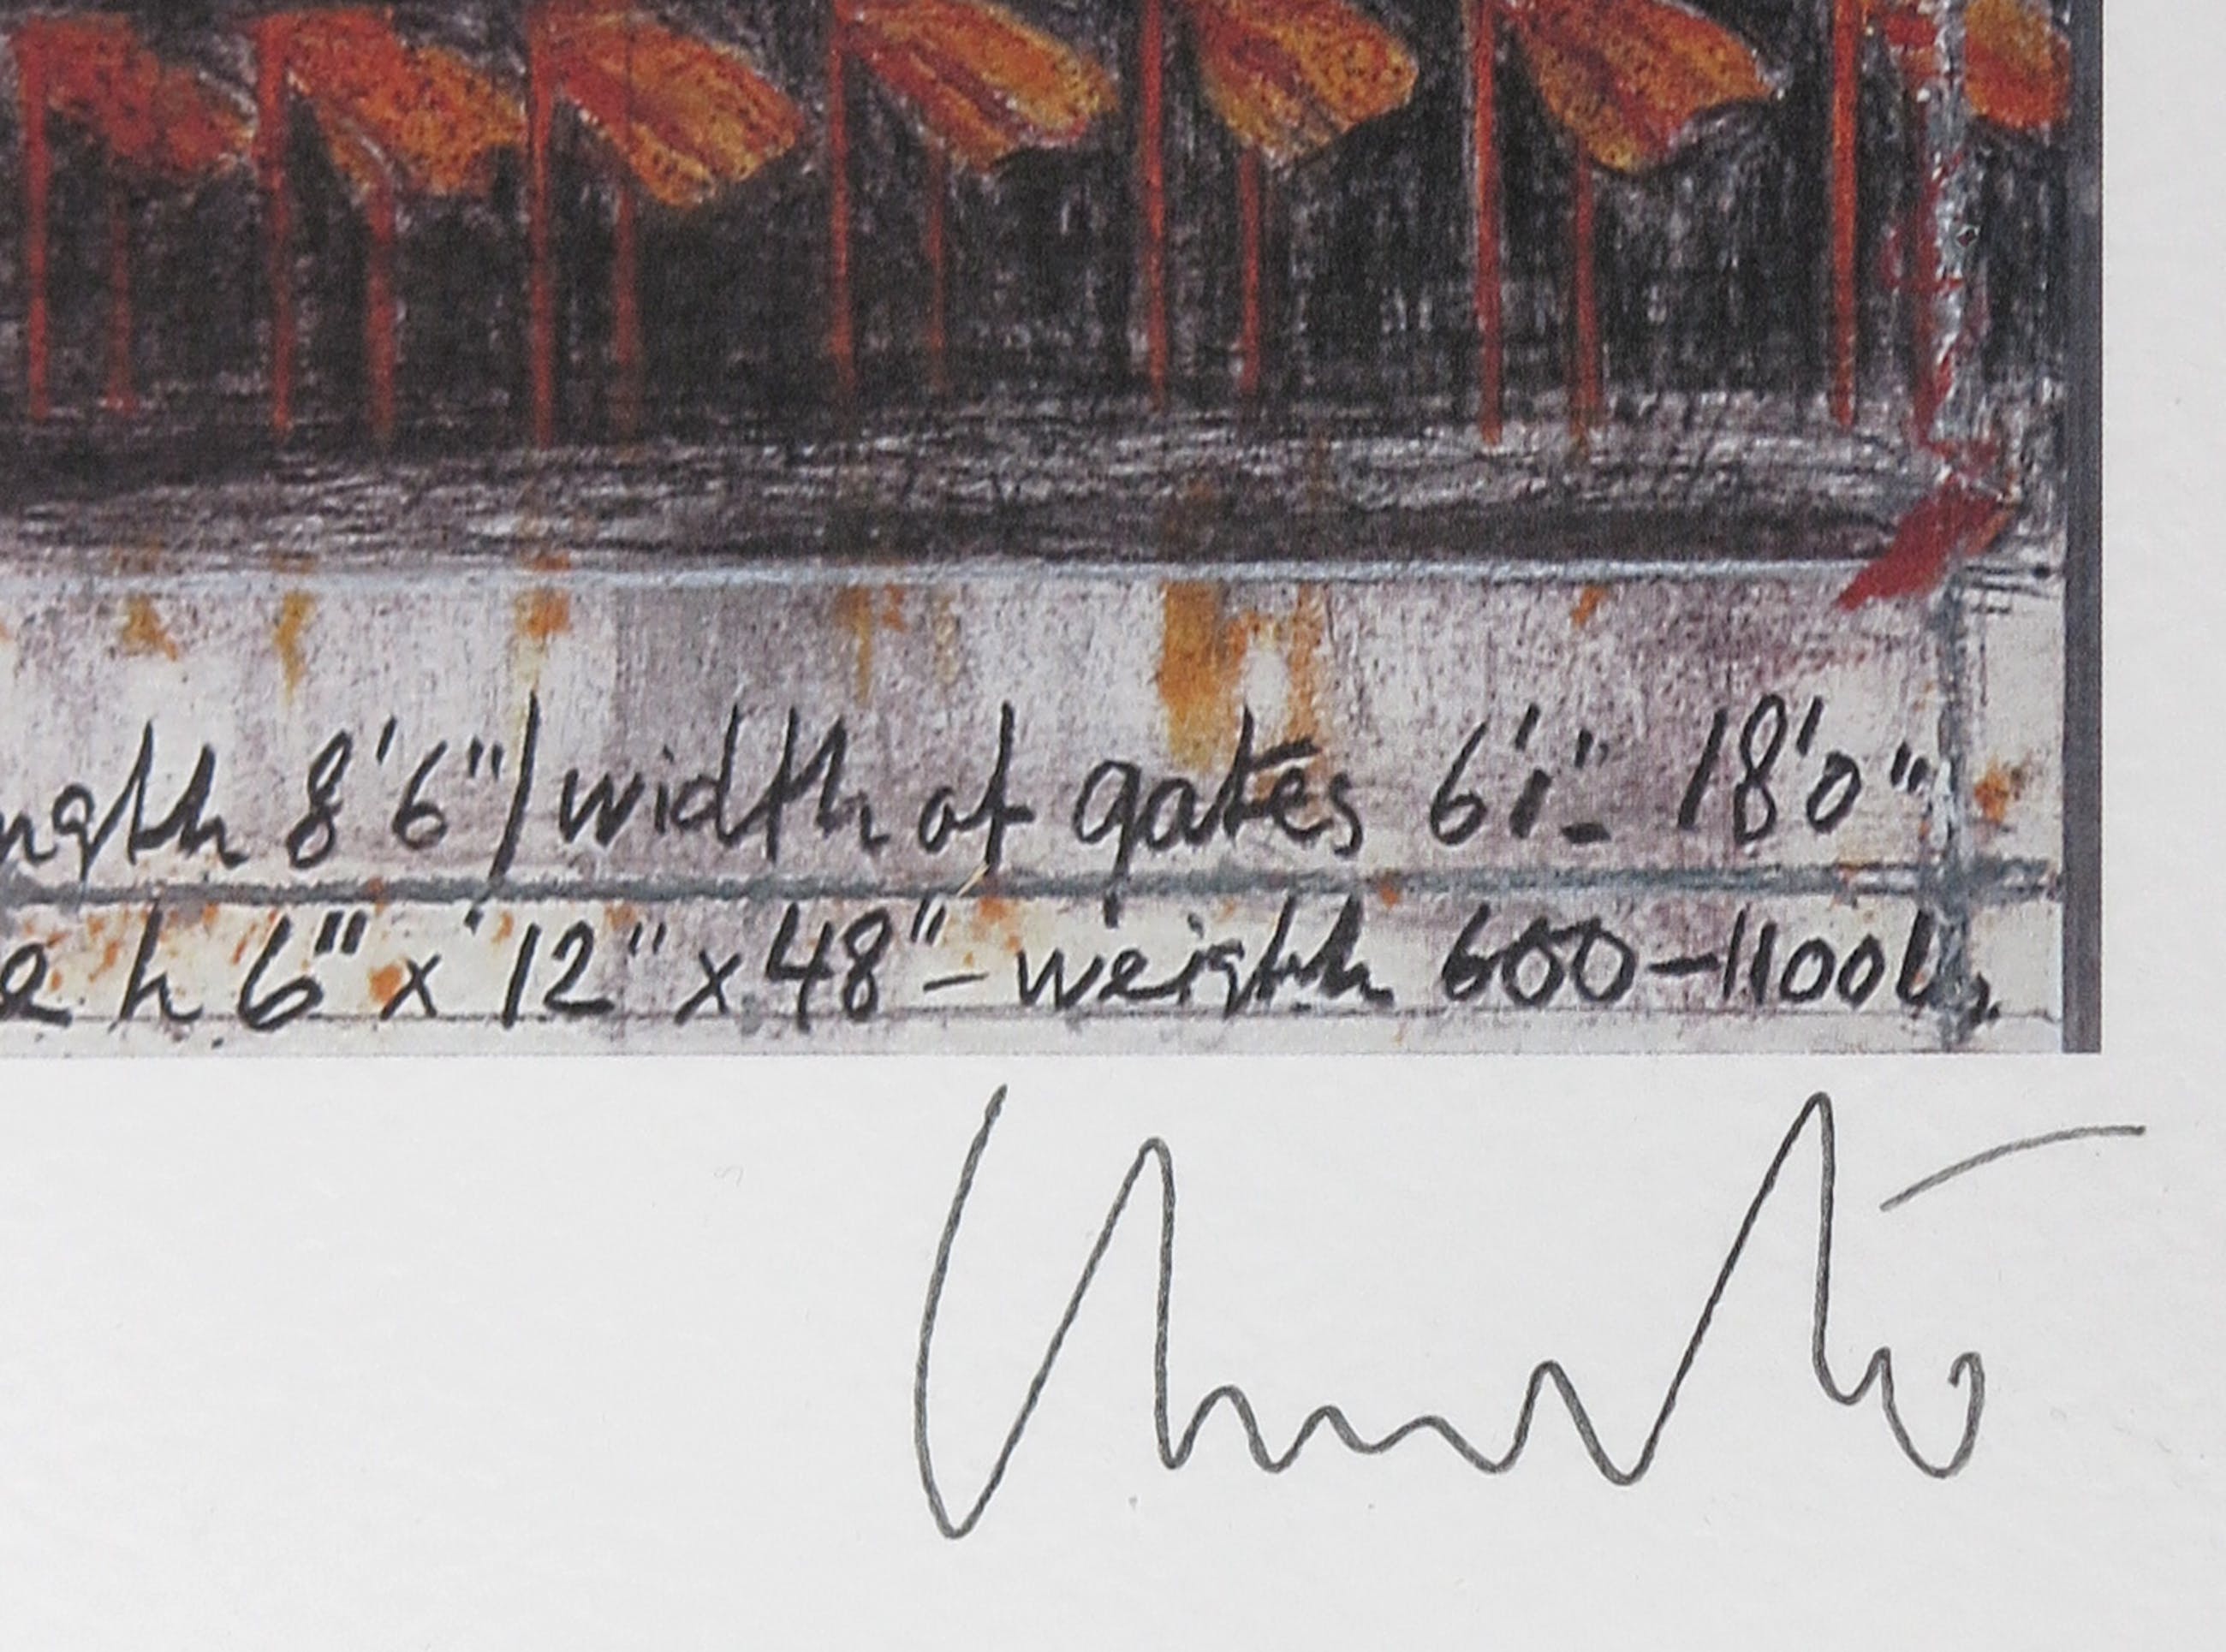 ngth 8'6" / width of gates 6'1" - 18'0"
e h 6" x 12" x 48" - weighth 600 - 1100lb,
Christo